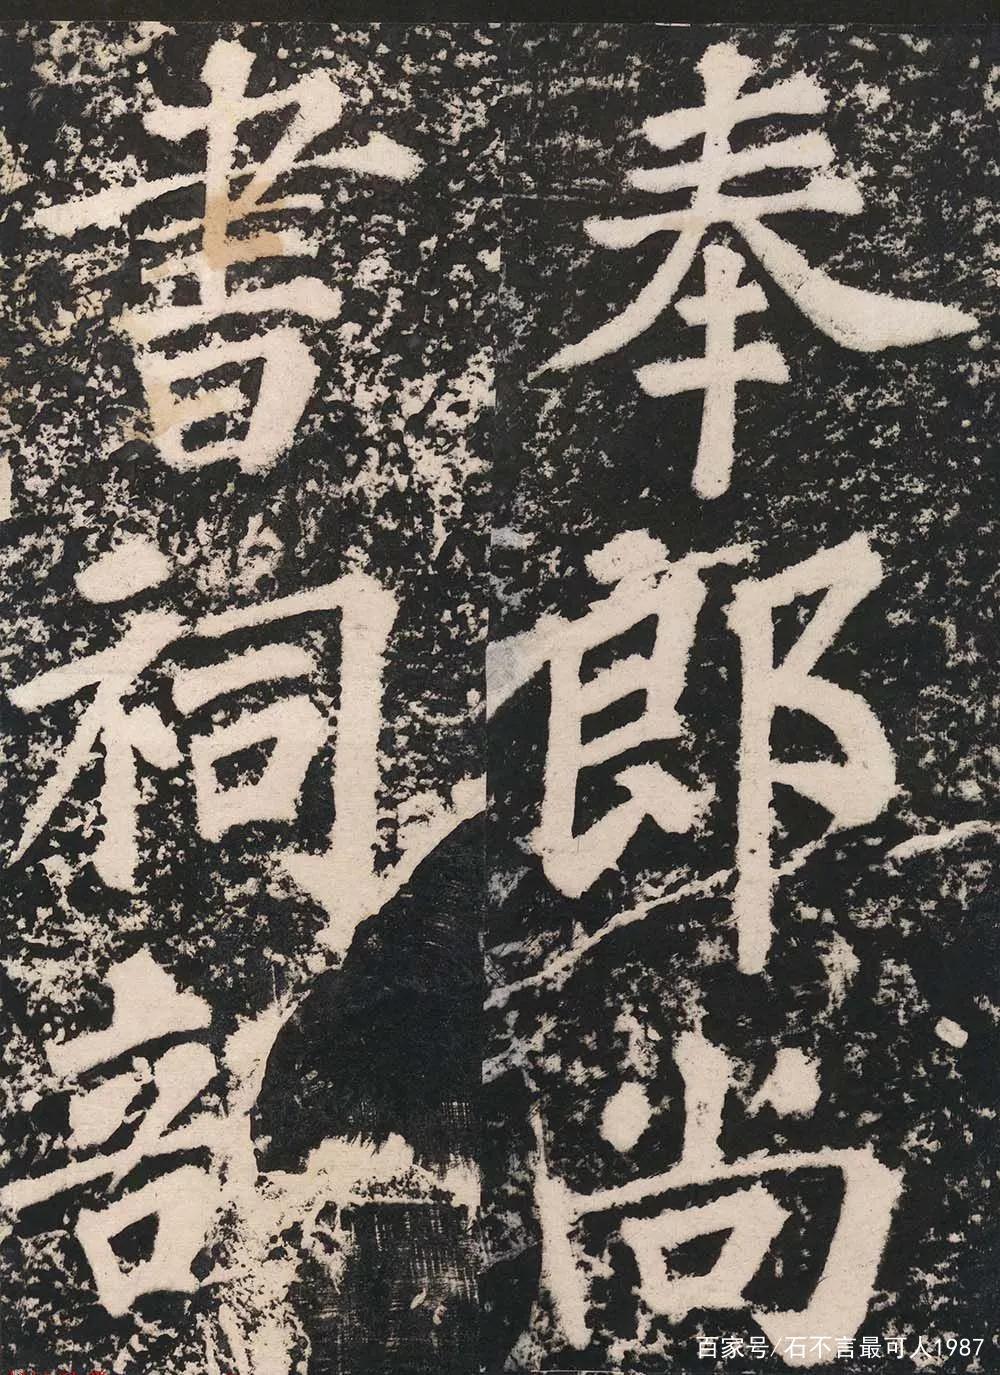 奉郎尚
書祠部
百家号/石不言最可人1987